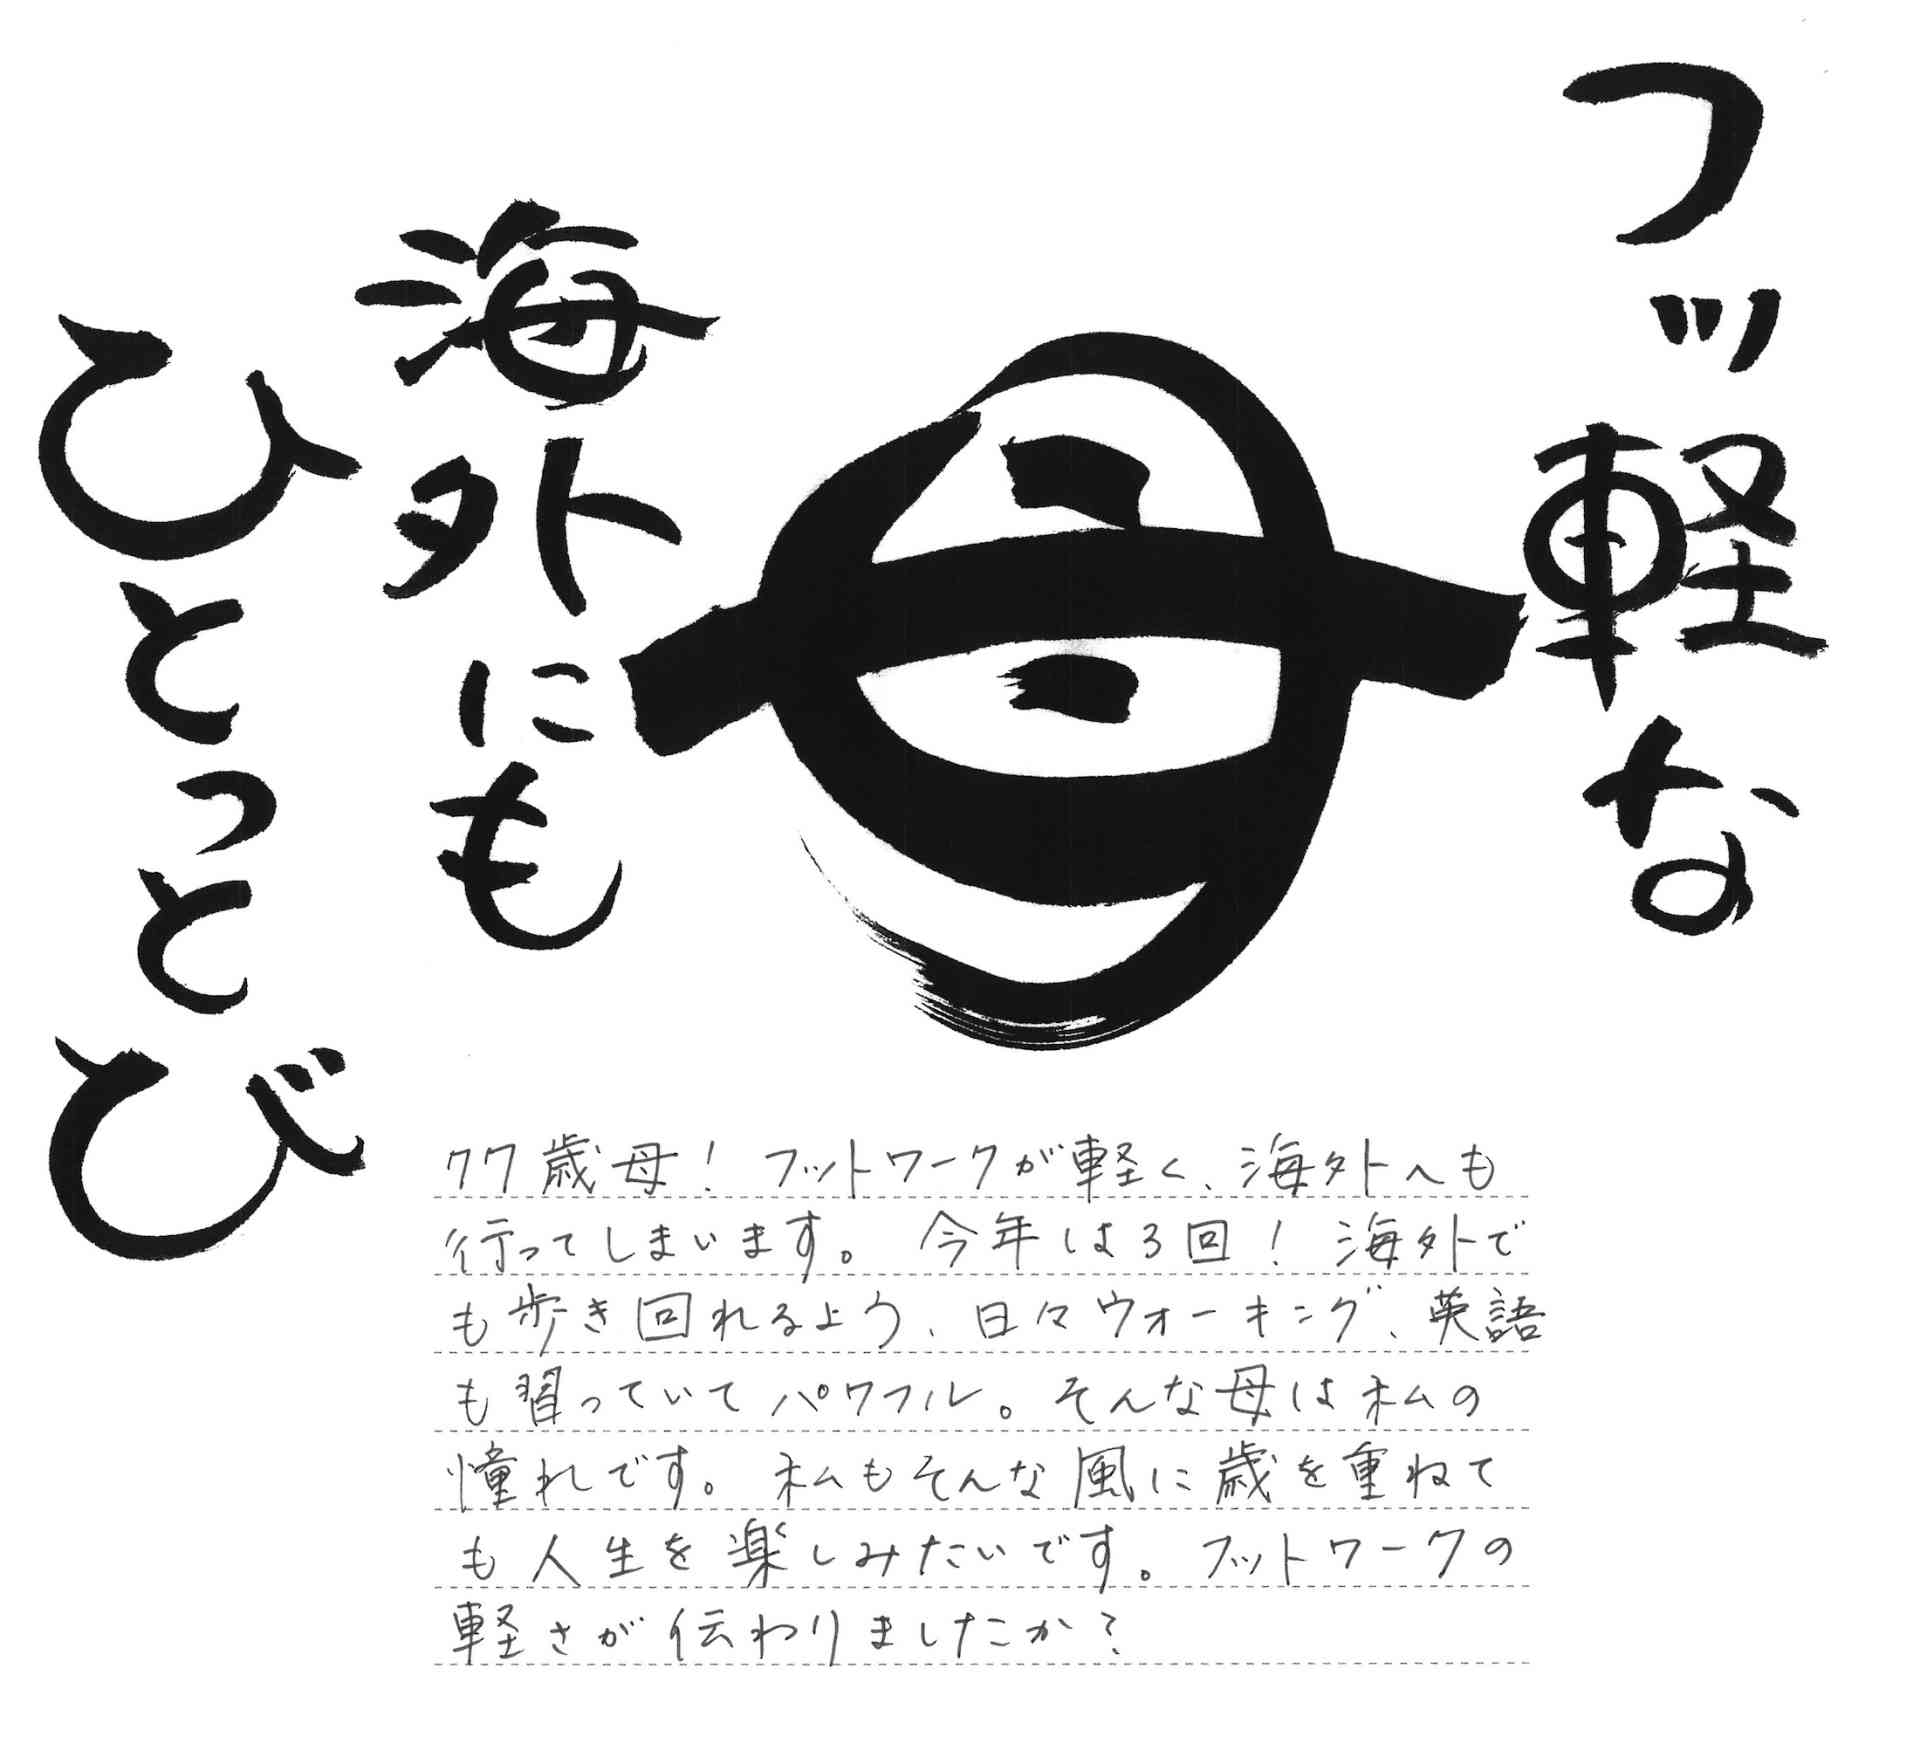 フッ軽な
母
海外にも
ひとっとび
77歳母！ フットワークが軽く、海外へも
行ってしまいます。 今年は3回！ 海外で
も歩き回れるよう、日々ウォーキング、英語
も習っていてパワフル。そんな母は私の
憧れです。 私もそんな風に歳を重ねて
も人生を楽しみたいです。フットワークの
軽さが伝わりましたか？